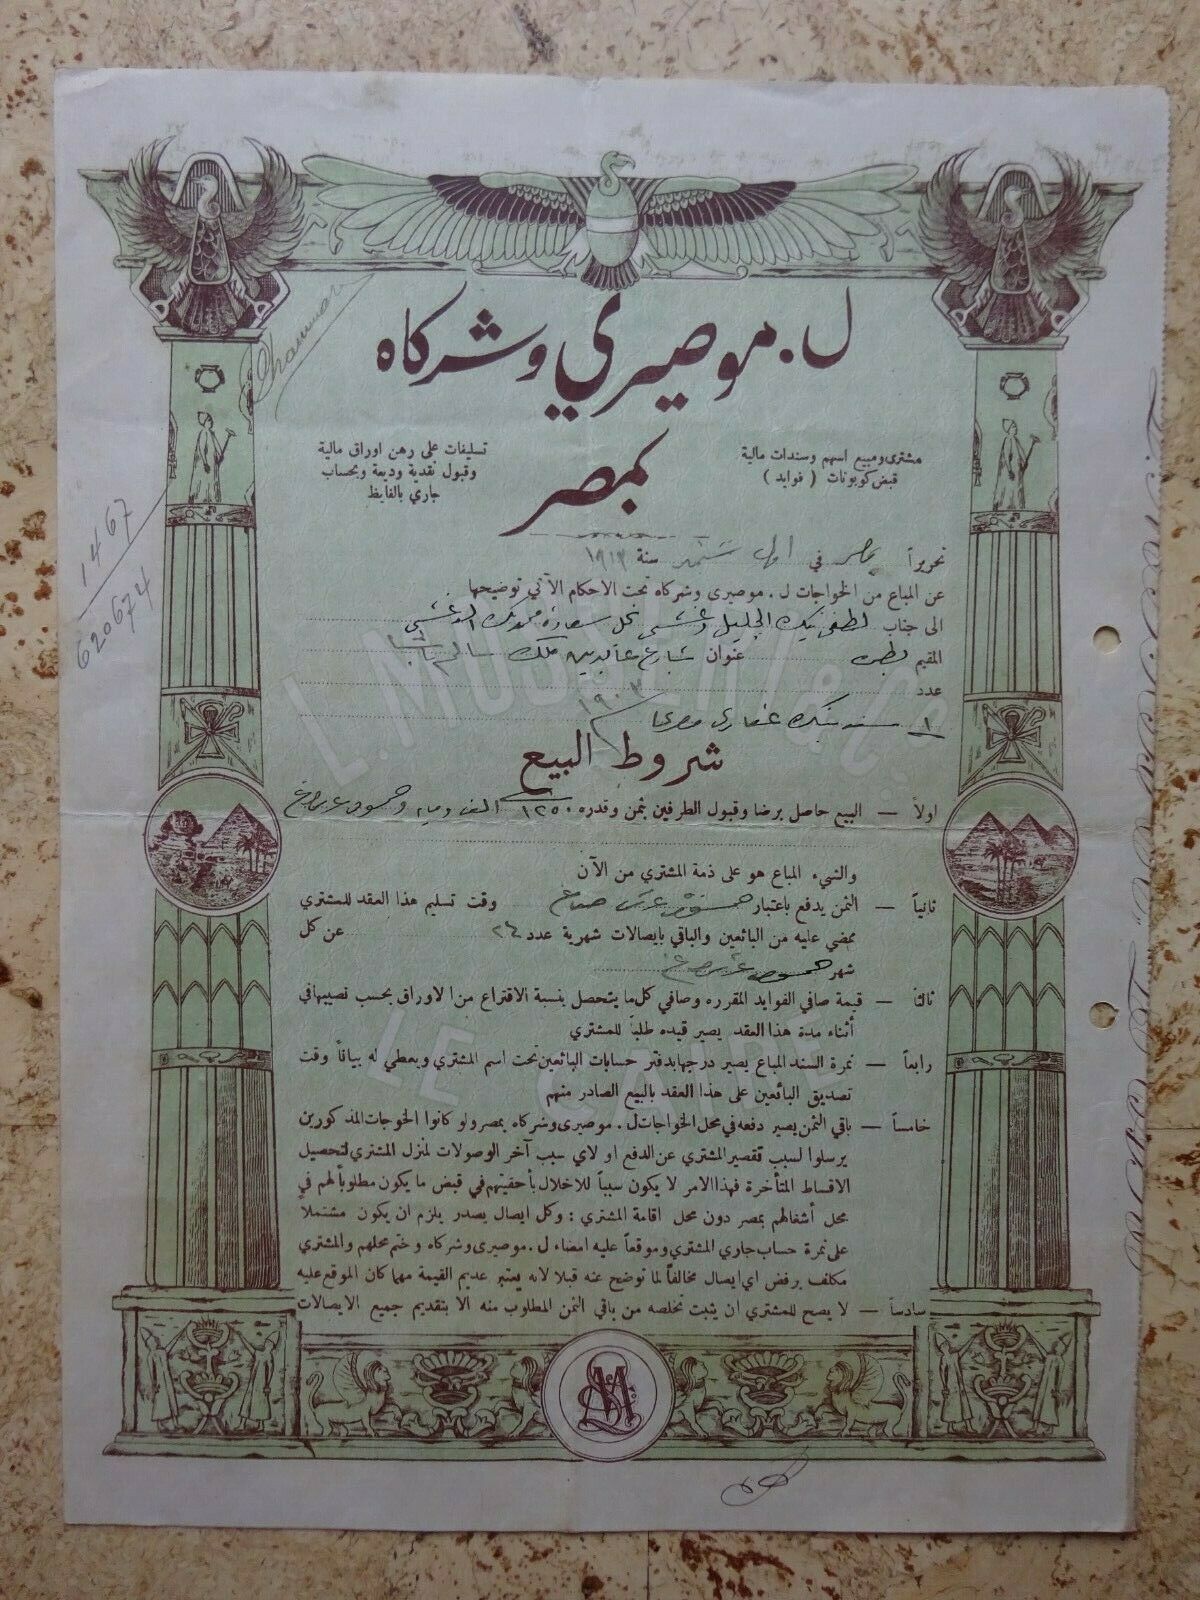 ل. موصيري وشركاه
بمصر
مشترى ومبيع اسهم وسندات مالية
قبض كوبونات ( فوايد )
تسليفات على رهن اوراق مالية
وقبول نقدية وديعة وبحساب
جاري بالفايظ
Chammar
1467
620674
تحريراً بمصر في اول سنة ١٩١٣
عن المباع من الخواجات ل. موصيرى وشركاه تحت الاحكام الآتي توضيحها
الى جناب لطفي بيك نجل سعادة
المقيم عنوان شارع عابدين ملك سالم باشا
عدد
١ سند بنك عقاري مصري ١٩٠٣
L. MOSSERI & Co.
شروط البيع
اولاً — البيع حاصل برضا وقبول الطرفين بثمن وقدره ١٢٥٠
والشيء المباع هو على ذمة المشتري من الآن
ثانياً — الثمن يدفع باعتبار وقت تسليم هذا العقد للمشتري
ممضي عليه من البائعين والباقي بايصالات شهرية عدد ٢٤ عن كل
شهر
ثالثاً — قيمة صافي الفوايد المقرره وصافي كل ما يتحصل بنسبة الاقتراع من الاوراق بحسب نصيبها في
أثناء مدة هذا العقد يصير قيده طلباً للمشتري
LE CAIRE
رابعاً — نمرة السند المباع يصير درجها بدفتر حسابات البائعين تحت اسم المشتري ويعطي له بياناً وقت
تصديق البائعين على هذا العقد بالبيع الصادر منهم
خامساً — باقي الثمن يصير دفعه في محل الخواجات ل. موصيرى وشركاه بمصر ولو كانوا الخوجات المذكورين
يرسلوا لسبب تقصير المشتري عن الدفع او لاي سبب آخر الوصولات لمنزل المشتري لتحصيل
الاقساط المتأخرة فهذا الامر لا يكون سبباً للاخلال بأحقيتهم في قبض ما يكون مطلوباً لهم في
محل أشغالهم بمصر دون محل اقامة المشتري : وكل ايصال يصدر يلزم ان يكون مشتملاً
على نمرة حساب جاري المشتري وموقعاً عليه امضاء ل. موصيرى وشركاه وختم محلهم والمشتري
مكلف برفض اي ايصال مخالفاً لما توضح عنه قبلا لانه يعتبر عديم القيمة مهما كان الموقع عليه
سادساً — لا يصح للمشتري ان يثبت تخلصه من باقي الثمن المطلوب منه الا بتقديم جميع الايصالات